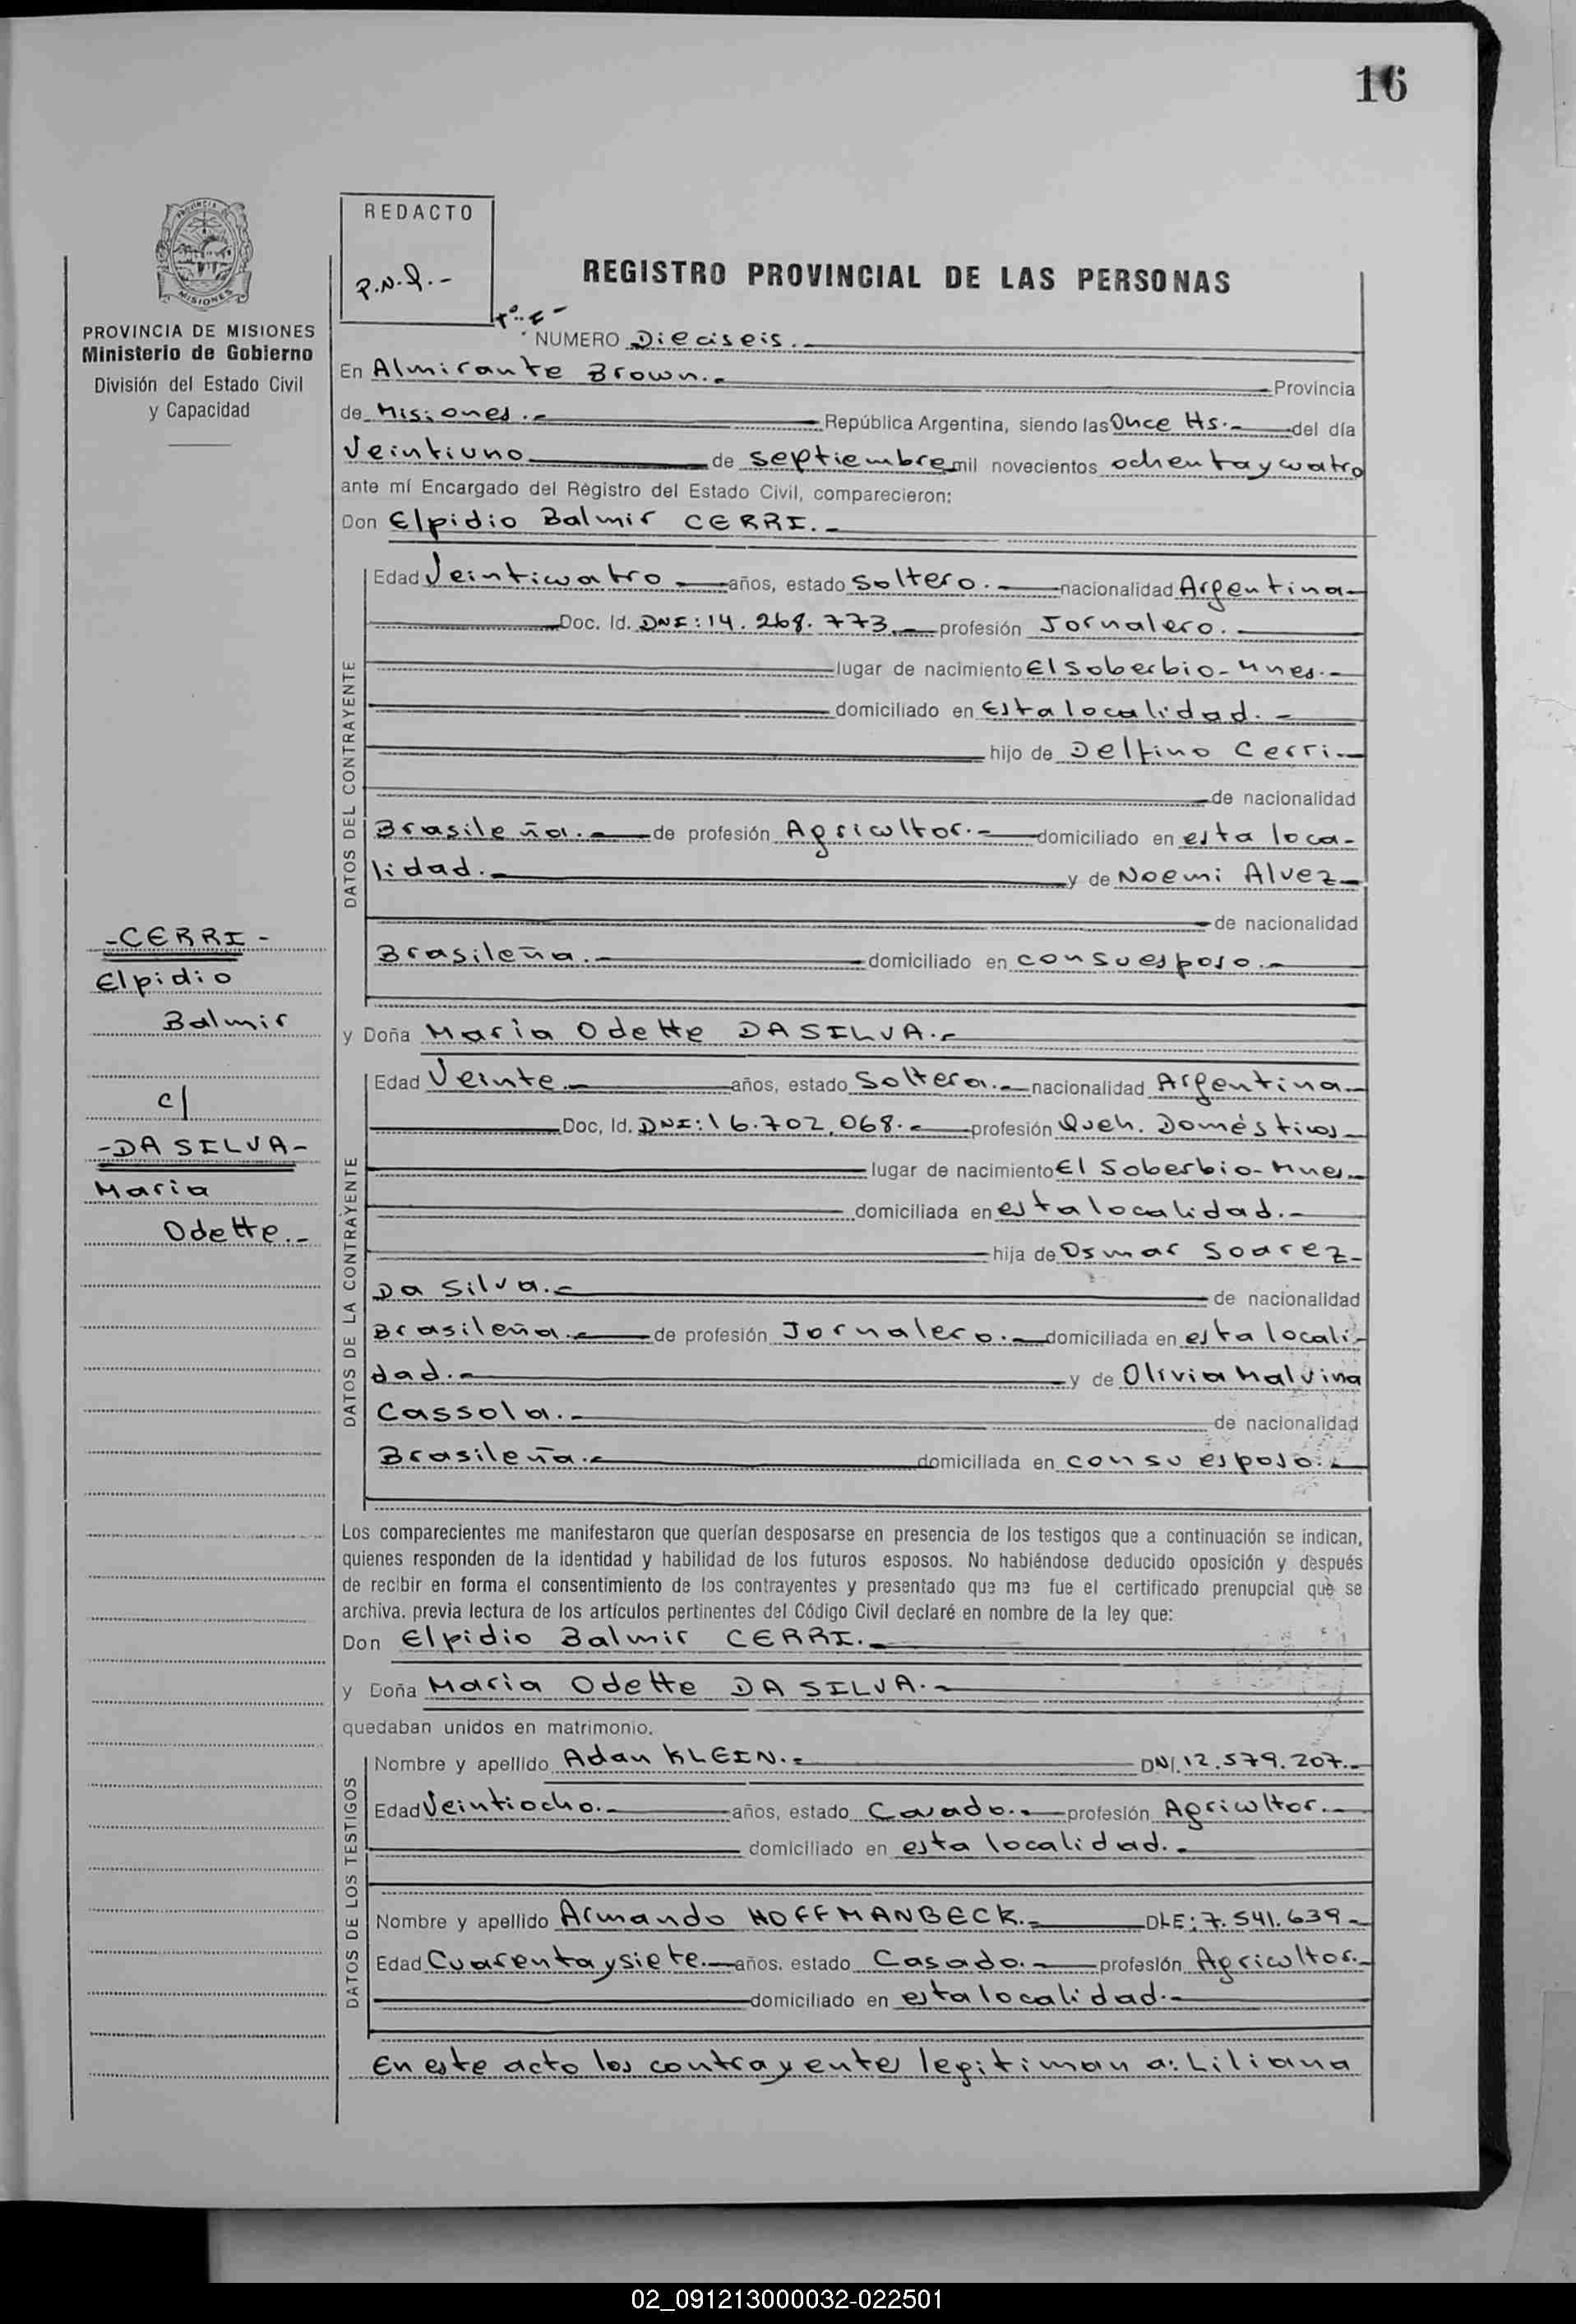 16
REDACTO
P.N.Q.-
REGISTRO PROVINCIAL DE LAS PERSONAS
PROVINCIA DE MISIONES
Ministerio de Gobierno
División del Estado Civil
y Capacidad
NUMERO Dieciseis.
En Almirante Brown.- Provincia
de Misiones.- República Argentina, siendo las Once Hs.- del día
Veintiuno de septiembre mil novecientos ochenta y cuatro
ante mí Encargado del Registro del Estado Civil, comparecieron:
Don Elpidio Balmir CERRI.-
DATOS DEL CONTRAYENTE
Edad Veinticuatro años, estado Soltero.- nacionalidad Argentina-
Doc. Id. DNI: 14.268.773.- profesión Jornalero.
lugar de nacimiento El Soberbio-Mnes.-
domiciliado en Esta localidad.-
hijo de Delfino Cerri.-
de nacionalidad
Brasileña.- de profesión Agricultor.- domiciliado en esta loca-
lidad.- y de Noemi Alvez-
de nacionalidad
Brasileña.- domiciliado en con su esposo.-
-CERRI-
Elpidio
Balmir
c/
-DA SILVA-
Maria
Odette.-
y Doña Maria Odette DA SILVA.-
DATOS DE LA CONTRAYENTE
Edad Veinte.- años, estado Soltera.- nacionalidad Argentina-
Doc, Id. DNI: 16.702.068.- profesión Queh. Domésticos-
lugar de nacimiento El Soberbio-Mnes-
domiciliada en esta localidad.-
hija de Osmar Soarez-
Da Silva.- de nacionalidad
Brasileña.- de profesión Jornalero.- domiciliada en esta locali-
dad.- y de Olivia Malvina
Cassola.- de nacionalidad
Brasileña.- domiciliada en con su esposo.-
Los comparecientes me manifestaron que querían desposarse en presencia de los testigos que a continuación se indican,
quienes responden de la identidad y habilidad de los futuros esposos. No habiéndose deducido oposición y después
de recibir en forma el consentimiento de los contrayentes y presentado que me fue el certificado prenupcial que se
archiva. previa lectura de los artículos pertinentes del Código Civil declaré en nombre de la ley que:
Don Elpidio Balmir CERRI.-
y Doña Maria Odette DA SILVA.-
quedaban unidos en matrimonio.
DATOS DE LOS TESTIGOS
Nombre y apellido Adan KLEIN.- DNI. 12.579.207.-
Edad Veintiocho.- años, estado Casado.- profesión Agricultor.-
domiciliado en esta localidad.-
Nombre y apellido Armando HOFFMANBECK.- DLE: 7.541.639-
Edad Cuarenta y siete.- años. estado Casado.- profesión Agricultor.-
domiciliado en esta localidad.-
En este acto los contrayentes legitiman a: Liliana
02_091213000032-022501